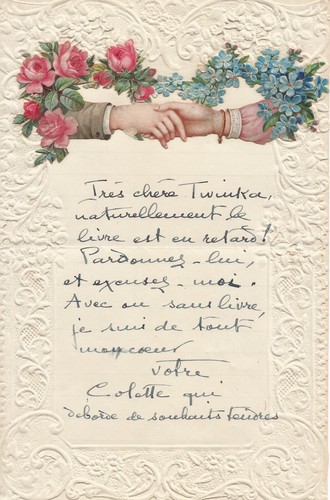 Très chère Twinka,
naturellement le
livre est en retard !
Pardonnez-lui,
et excusez-moi.
Avec ou sans livre,
je suis de tout
mon cœur
votre
Colette qui
déborde de souhaits tendres